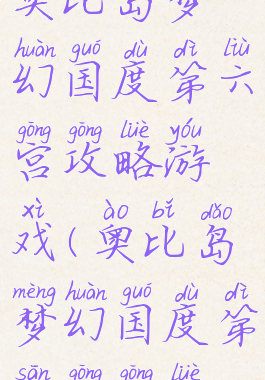 奥比岛梦
huàn guó dù dì liù
幻国度第六
gōng gōng lüè yóu
宫攻略游
xì ào bǐ dǎo
戏(奥比岛
mèng huàn guó dù dì
梦幻国度第
sān gōng gōng lüè